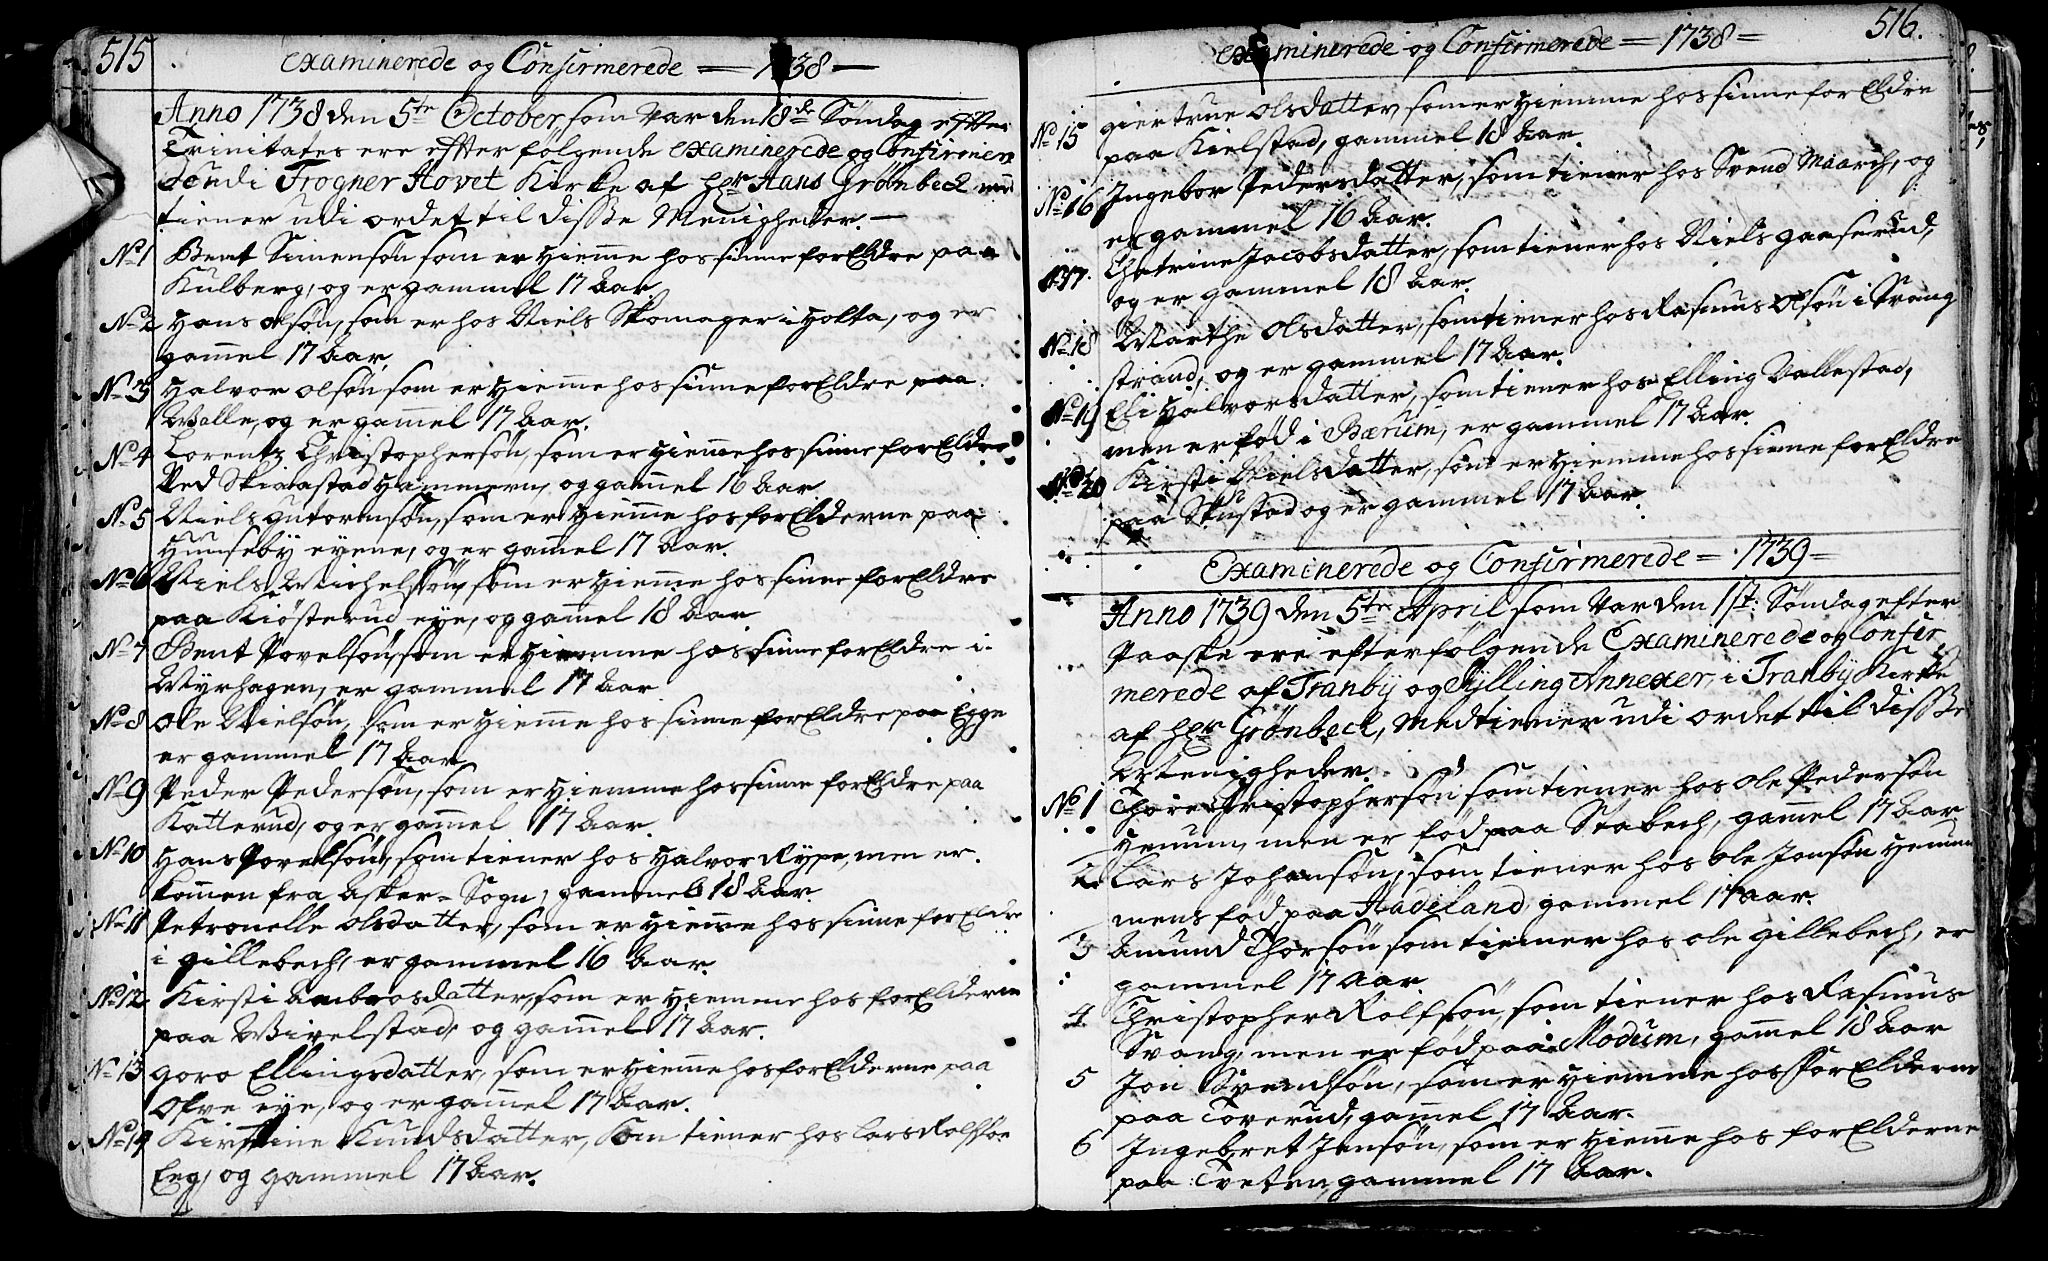 515
Examinerede og Confirmerede = 1738 =
Anno 1738 den 5te October, som var den 18de Søndag effter
Trinitates ere effter følgende Examinerede og Confirmere
de udi Trogner Hovet Kirke af Hr Hans Grønbeck med
tiener udi ordet til disse Menigheder. —
No 1 Bent Simensøn som er hieme hos sinne forEldre paa
Kulberg, og er gammel 17 Aar.
No 2 Hans olsøn, som er hos Niels Skomager i Holta, og er
gamel 17 Aar.
No 3 Halvor olsøn som er hieme hos sinne forEldre paa
Walle, og er gamel 17 Aar.
No 4 Lorentz Christophersøn, som er hieme hos sinne forEldre
Ved Skiæstad Hammern, og gamel 16 Aar
No 5 Niels Gutormsøn, som er hieme hos forElderne paa
Huuseby eyene, og er gamel 17 Aar.
No 6 Niels Michelsøn, som er hieme hos sinne forEldre
paa Kiøsterud eye, og gamel 18 Aar
No 7 Bent Povelsøn, som er hiemme hos sinne forEldre i
Myrhagen, er gammel 17 Aar
No 8 Ole Nielsøn, som er hieme hos sinne forEldre paa Egge
er gammel 17 Aar
No 9 Peder Pedersøn, som er hiemme hos sinne forEldre paa
Katterud, og er gamel 17 Aar.
No 10 Hans Povelsøn, som tiener hos Halvor Rype, men er
komen fra Asker = Sogn, gammel 18 Aar.
No 11 Petronelle olsdatter, som er hieme hos sinne forEldre
i gillebech, er gammel 16 Aar.
No 12 Kirsti Ambrosdatter, som er hiemme hos forElderne
paa Wivelstad, og gamel 17 Aar.
No 13 goro Ellingsdatter, som er hieme hos forElderne paa
Ofve eye, og er gamel 17 Aar.
No 14 Kirstine Knudsdatter, som tiener hos Lars Rolfsøn
Eeg, og gammel 17 Aar.
516.
Examinerede og Confirmerede = 1738 =
No 15 giertrue olsdatter, som er hiemme hos sinne forEldre
paa Kielstad, gammel 18 Aar.
No 16 Ingebor Pedersdatter, som tiener hos Svend Maarch, og
er gammel 16 Aar.
17. Chatrine Jacobsdatter, som tiener hos Niels gaaserud,
og er gammel 18 Aar.
No 18 Marthe olsdatter, som tiener hos Rasmus olsøn i Svang
strand, og er gammel 17 Aar.
No 19 Eli Halvorsdatter, som tiener hos Elling Vallestad,
men er fød i Bærum, er gammel 17 Aar.
No 20 Kirsti Nielsdatter, som er hiemme hos sinne forEldre
paa Skustad og er gammel 17 Aar.
Examinerede og Confirmerede = 1739 =
Anno 1739 den 5te April som var den 1st: Søndag efter
Paaske ere efterfølgende Examinerede og Confir
merede af Tranby og Sylling Annexer, i Tranby Kirke
af Hr Grønbeck, Medtiener udi ordet til disse
Menigheder.
No 1 Thore Christophersøn som tiener hos ole Pedersøn
Henum, men er fød paa Stabech, gamel 17 Aar
2. Lars Johansøn, som tiener hos ole Jonsøn Henum
mens fød paa Hadeland, gammel 17 aar.
3 Amund Thorsøn som tiener hos ole gillebech, er
gammel 17 Aar.
4. Christopher Rolfsøn, som tiener hos Rasmus
Svang, men er fød paa Modum, gamel 18 Aar
5 Jon Svendsøn, som er hiemme hos forElderne
paa Toverud, gamel 17 Aar.
6 Ingebret Jonsøn, som er hieme hos forElderne
paa Tveten, gammel 17 Aar.